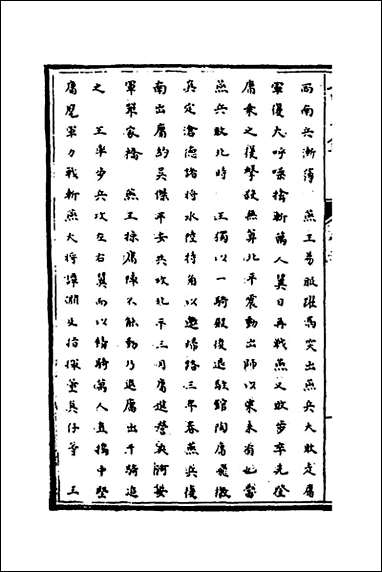 西南兵漸薄 燕王易服躍馬突出燕兵大敗走庸
軍復大呼噪擒斬萬人翼日再戰燕又敗步卒先登
庸乘之復擊殺無算北平震動出師以來未有也當
燕兵敗北時 王獨以一騎殿後退駐館陶庸飛檄
真定滄德諸將水陸犄角以邀歸路三年春燕兵復
南出庸約吳傑平安共攻北平三月庸進營夾河按
軍單家橋 燕王掠庸陣不能動乃退庸出千騎追
之 王率步兵攻左右翼而以鐵騎萬人直擣中堅
庸麾軍力戰斬燕大將譚淵及指揮董真仔等 王